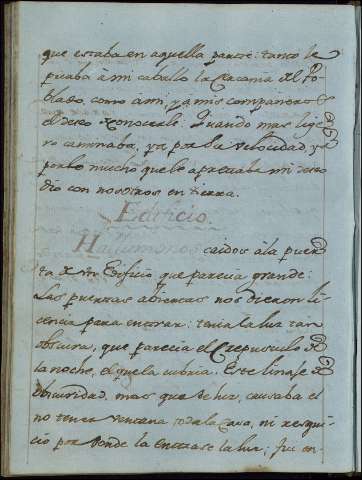 que estaba en aquella parte: tanto le
picaba à mi caballo la cercania del Po-
blado, como à mi, y a mis compañeros
el deseo de conocerle: Quando mas lige-
ro caminaba, ya por su velocidad, ya
por lo mucho que le apretaba mi deseo
dio con nosotros en tierra.
Edificio.
Hallamonos caidos à la puer-
ta de un Edificio que parecia grande:
Las puertas abiertas nos dieron li-
cencia para entrar: tenia la luz tan
obscura, que parecia el Crepusculo de
la noche, el que la cubria. Este linaje de
obscuridad, mas que de ber, causaba el
no tener ventana toda la Casa, ni resqui-
cio por donde la entrase la luz; fui en-